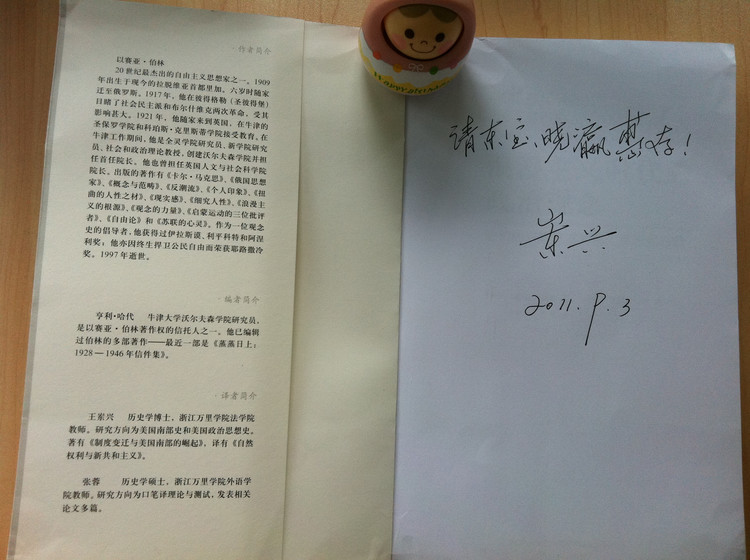 ·作者简介
以赛亚·伯林
20世纪最杰出的自由主义思想家之一。1909
年出生于现今的拉脱维亚首都里加，六岁时随家
迁至俄罗斯。1917年，他在彼得格勒（圣彼得堡）
目睹了社会民主派和布尔什维克两次革命，受其
影响甚大。1921年，他随家来到英国，在牛津的
圣保罗学院和科珀斯·克里斯蒂学院接受教育。在
牛津工作期间，他是全灵学院研究员、新学院研究
员、社会和政治理论教授，创建沃尔夫森学院并担
任首任院长。他也曾担任英国人文与社会科学院
院长。出版的著作有《卡尔·马克思》、《俄国思想
家》、《概念与范畴》、《反潮流》、《个人印象》、《扭
曲的人性之材》、《现实感》、《细究人性》、《浪漫主
义的根源》、《观念的力量》、《启蒙运动的三位批评
者》、《自由论》和《苏联的心灵》。作为一位观念
史的倡导者，他获得过伊拉斯谟、利平科特和阿涅
利奖；他亦因终生捍卫公民自由而荣获耶路撒冷
奖。1997年逝世。
·编者简介
亨利·哈代 牛津大学沃尔夫森学院研究员，
是以赛亚·伯林著作权的信托人之一。他已编辑
过伯林的多部著作——最近一部是《蒸蒸日上：
1928—1946年信件集》。
·译者简介
王岽兴 历史学博士，浙江万里学院法学院
教师。研究方向为美国南部史和美国政治思想史。
著有《制度变迁与美国南部的崛起》，译有《自然
权利与新共和主义》。
张蓉 历史学硕士，浙江万里学院外语学
院教师。研究方向为口笔译理论与测试，发表相关
论文多篇。
请东宝、晓瀛惠存！
岽兴
2011.9.3